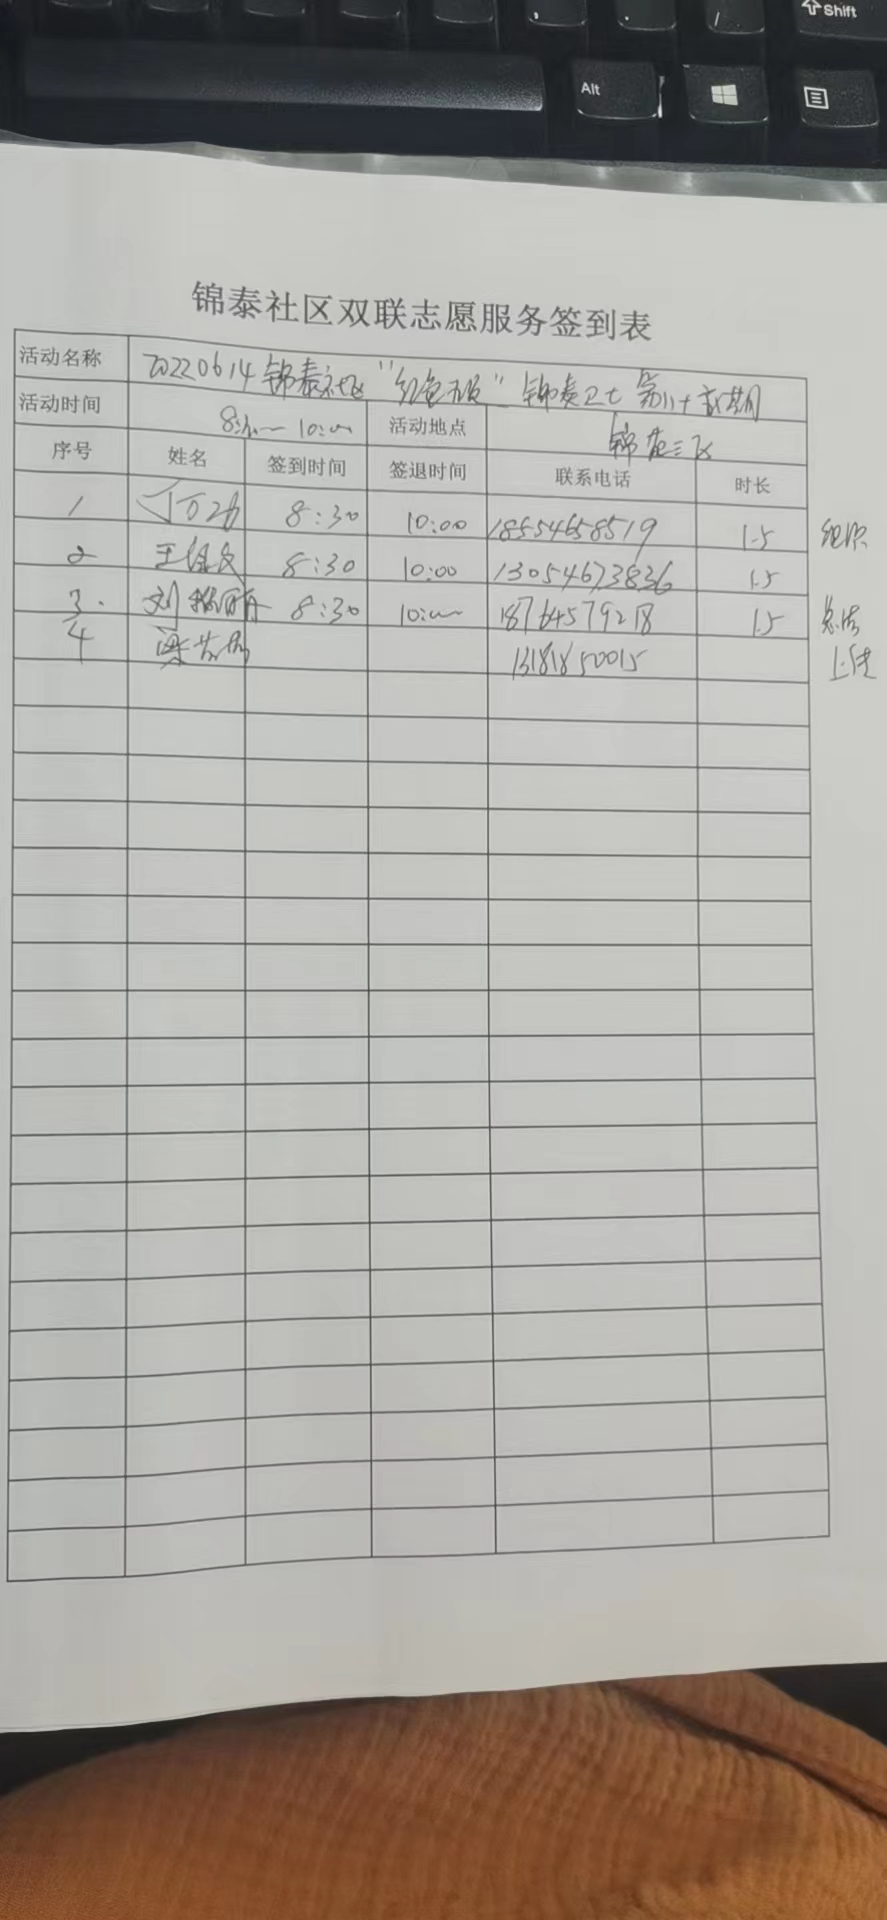 Shift
Alt
锦泰社区双联志愿服务签到表
活动名称 20220614锦泰社区"红色" 锦泰卫士 第八十 期
活动时间 8:30— 10:00 活动地点 锦 三区
序号 姓名 签到时间 签退时间 联系电话 时长
1 丁 8:30 10:00 18554658519 1.5 组织
2 王 8:30 10:00 13054673836 1.5
3. 刘 丽 8:30 10:00 18764579218 1.5 总结
4 梁 13181850015 上传